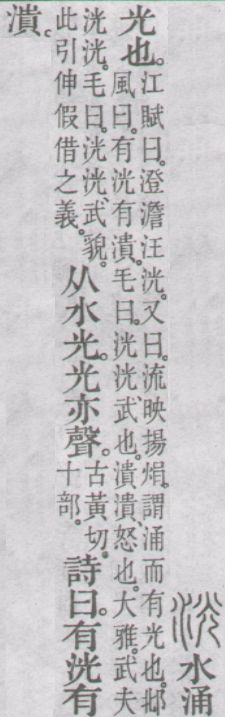 洸水涌
光也。
江賦曰。澄澹汪洸。又曰。流映揚焆。謂涌而有光也。邶
風曰。有洸有潰。毛曰。洸洸、武也。潰潰、怒也。大雅。武夫
洸洸。毛曰。洸洸、武貌。
此引伸假借之義。
从水光。光亦聲。
古黃切。
十部。
詩曰。有洸有
潰。